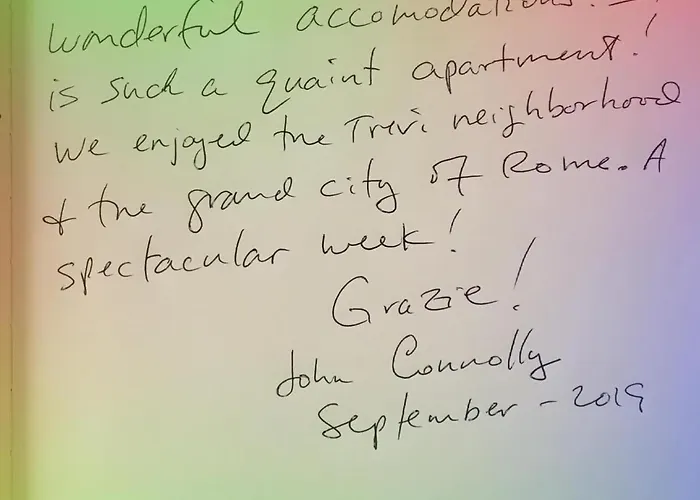 wonderful accomodations!
is such a quaint apartment!
We enjoyed the Trevi neighborhood
& the grand city of Rome. A
spectacular week!
Grazie!
John Connolly
September - 2019